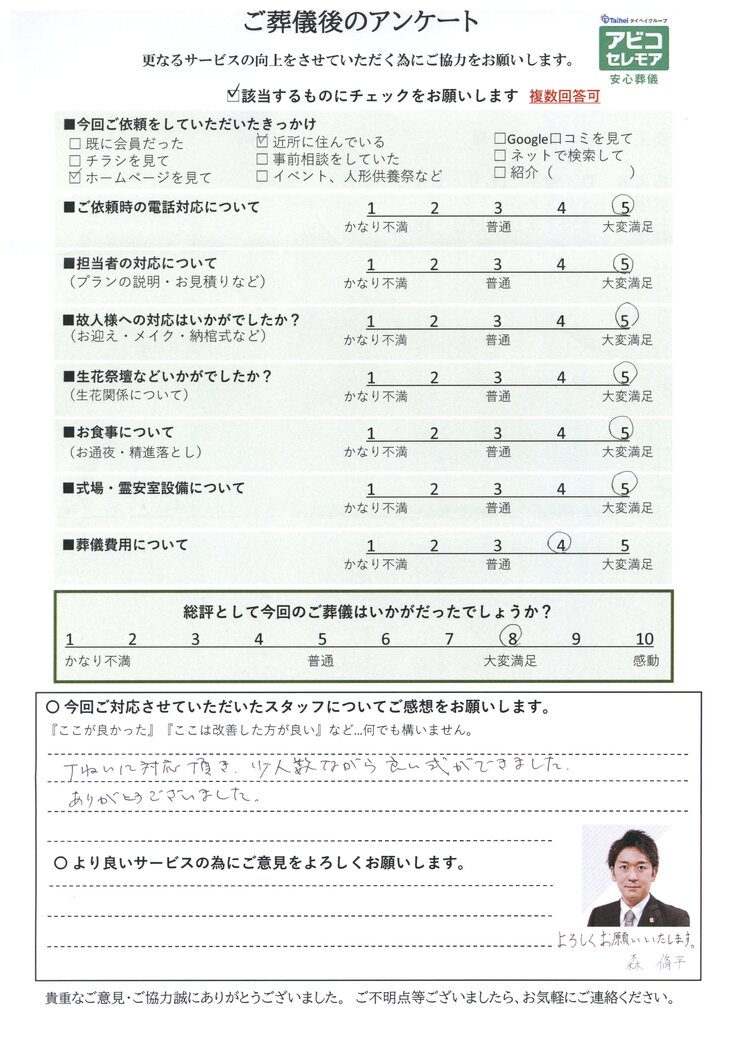 ご葬儀後のアンケート
Taihei タイヘイグループ
アビコ
セレモア
安心葬儀
更なるサービスの向上をさせていただく為にご協力をお願いします。
☑該当するものにチェックをお願いします 複数回答可
■今回ご依頼をしていただいたきっかけ
□ 既に会員だった ☑ 近所に住んでいる □Google口コミを見て
□ チラシを見て □ 事前相談をしていた □ ネットで検索して
☑ ホームページを見て □ イベント、人形供養祭など □ 紹介（ ）
■ご依頼時の電話対応について 1 2 3 4 5
かなり不満 普通 大変満足
■担当者の対応について 1 2 3 4 5
（プランの説明・お見積りなど） かなり不満 普通 大変満足
■故人様への対応はいかがでしたか？ 1 2 3 4 5
（お迎え・メイク・納棺式など） かなり不満 普通 大変満足
■生花祭壇などいかがでしたか？ 1 2 3 4 5
（生花関係について） かなり不満 普通 大変満足
■お食事について 1 2 3 4 5
（お通夜・精進落とし） かなり不満 普通 大変満足
■式場・霊安室設備について 1 2 3 4 5
かなり不満 普通 大変満足
■葬儀費用について 1 2 3 4 5
かなり不満 普通 大変満足
総評として今回のご葬儀はいかがだったでしょうか？
1 2 3 4 5 6 7 8 9 10
かなり不満 普通 大変満足 感動
〇 今回ご対応させていただいたスタッフについてご感想をお願いします。
『ここが良かった』『ここは改善した方が良い』など…何でも構いません。
丁ねいに対応頂き、少人数ながら良い式ができました。
ありがとうございました。
〇 より良いサービスの為にご意見をよろしくお願いします。
よろしくお願いいたします。
森 脩平
貴重なご意見・ご協力誠にありがとうございました。 ご不明点等ございましたら、お気軽にご連絡ください。